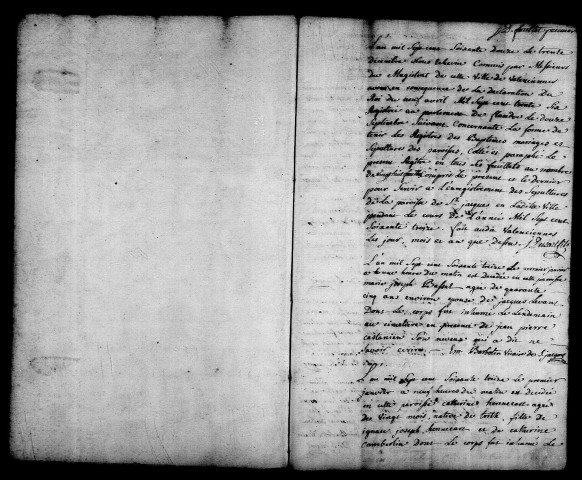 L'an mil Sept cens Soixante douze le trente
décembre Nous Echevin Commis par Messieurs
du Magistrat de cette Ville de Valenciennes
avons en consequence de la declaration Du
Roi du neuf avril Mil Sept cens trente Six
Registrée au parlement de flandre le douze
Septembre Suivant Concernante la forme de
tenir les Registres des Baptêmes mariages et
Sepultures des paroisses, Cotté et paraphé le
present Registre en tous Ses feuillets au nombre
compris le present et le dernier
pour Servir a L'enregistrement des Sepultures
de la paroisse de St. jacques en Ladite Ville
pendant le cours De L'année Mil Sept cent
Soixante treize. fait audit Valenciennes
Les jour, mois et an que dessus
L'an mil Sept cens Soixante treize le premier janvier
a heures du matin est decedée en cette paroisse
marie joseph Basset agée de quarante
cinq ans environ epouse de jacques
Dont le corps fut inhumé le Lendemain
au cimetiere en presence de jean pierre
Son neveu qui a dit ne
Savoir ecrire. Vicaire de St. jacques
L'an mil Sept cens Soixante treize le premier
janvier a neuf heures du matin est decedée
en cette paroisse catherine agée
de Vingt mois, native de fille de
ignace joseph et de catherine
dont Le corps fut inhumé Le